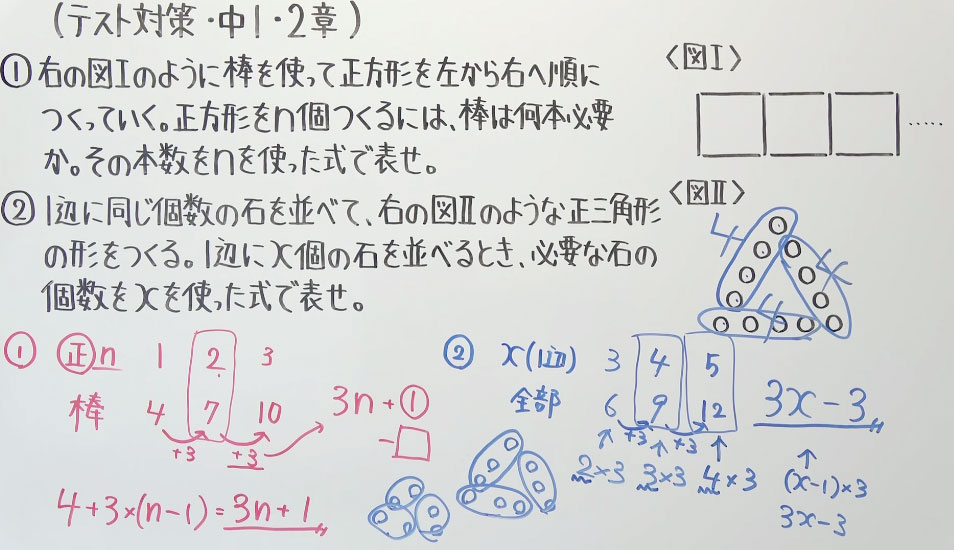 (テスト対策・中1・2章)
① 右の図Ⅰのように棒を使って正方形を左から右へ順に
つくっていく。正方形をn個つくるには、棒は何本必要
か。その本数をnを使った式で表せ。
<図Ⅰ>
.....
② 1辺に同じ個数の石を並べて、右の図Ⅱのような正三角形
の形をつくる。1辺にx個の石を並べるとき、必要な石の
個数をxを使った式で表せ。
<図Ⅱ>
4 4
4
① 正n 1 2 3
棒 4 7 10 3n+①
+3 +3 -□
4+3×(n-1)=3n+1
② x(1辺) 3 4 5
全部 6 9 12 3x-3
+3 +3
2×3 3×3 4×3 (x-1)×3
3x-3